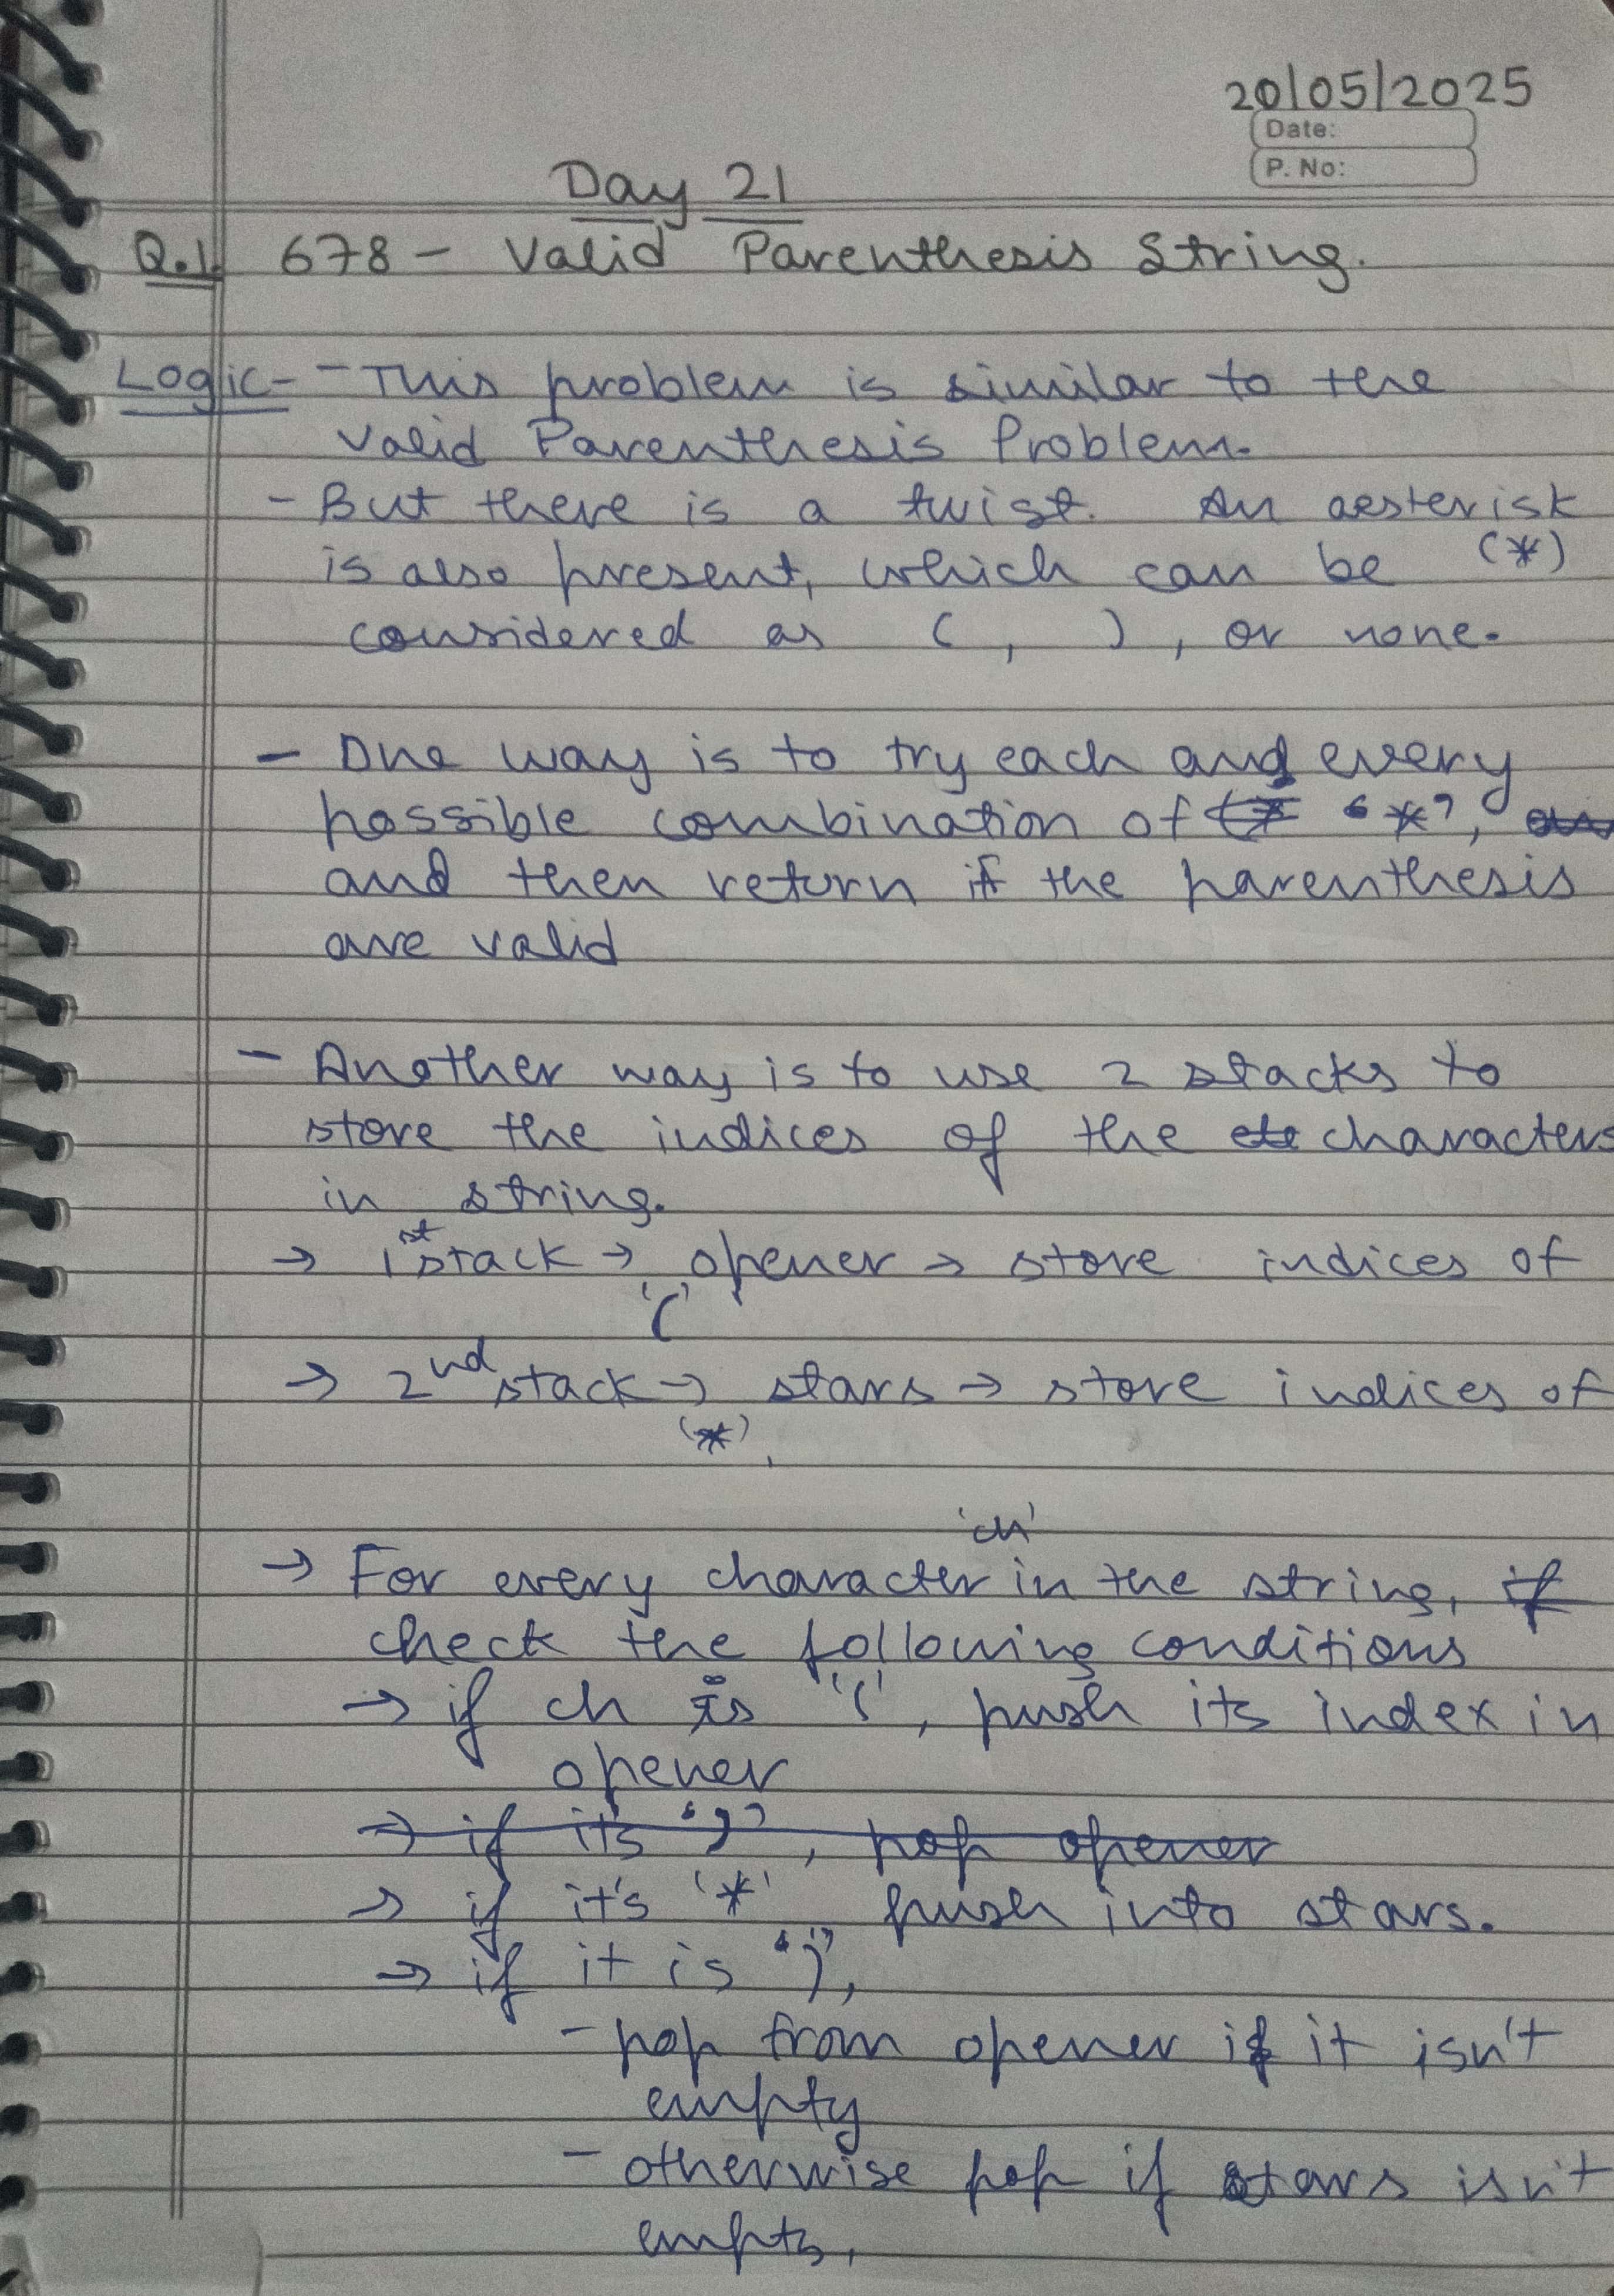 20/05/2025
Date:
P. No:
Day 21
Q.1. 678 - Valid Parenthesis String.
Logic- - This problem is similar to the
Valid Parenthesis Problem.
- But there is a twist. An aesterisk
is also present, which can be (*)
considered as ( , ) , or none.
- One way is to try each and every
possible combination of '*',
and then return if the parenthesis
are valid
- Another way is to use 2 stacks to
store the indices of the characters
in string.
→ 1st stack → opener → store indices of
'('
→ 2nd stack → stars → store indices of
'*'.
'ch'
→ For every character in the string, if
check the following conditions
→ if ch is '(', push its index in
opener
→ if it's ')', pop opener
→ if it's '*', push into stars.
→ if it is ')',
- pop from opener if it isn't
empty
- otherwise pop if stars isn't
empty,